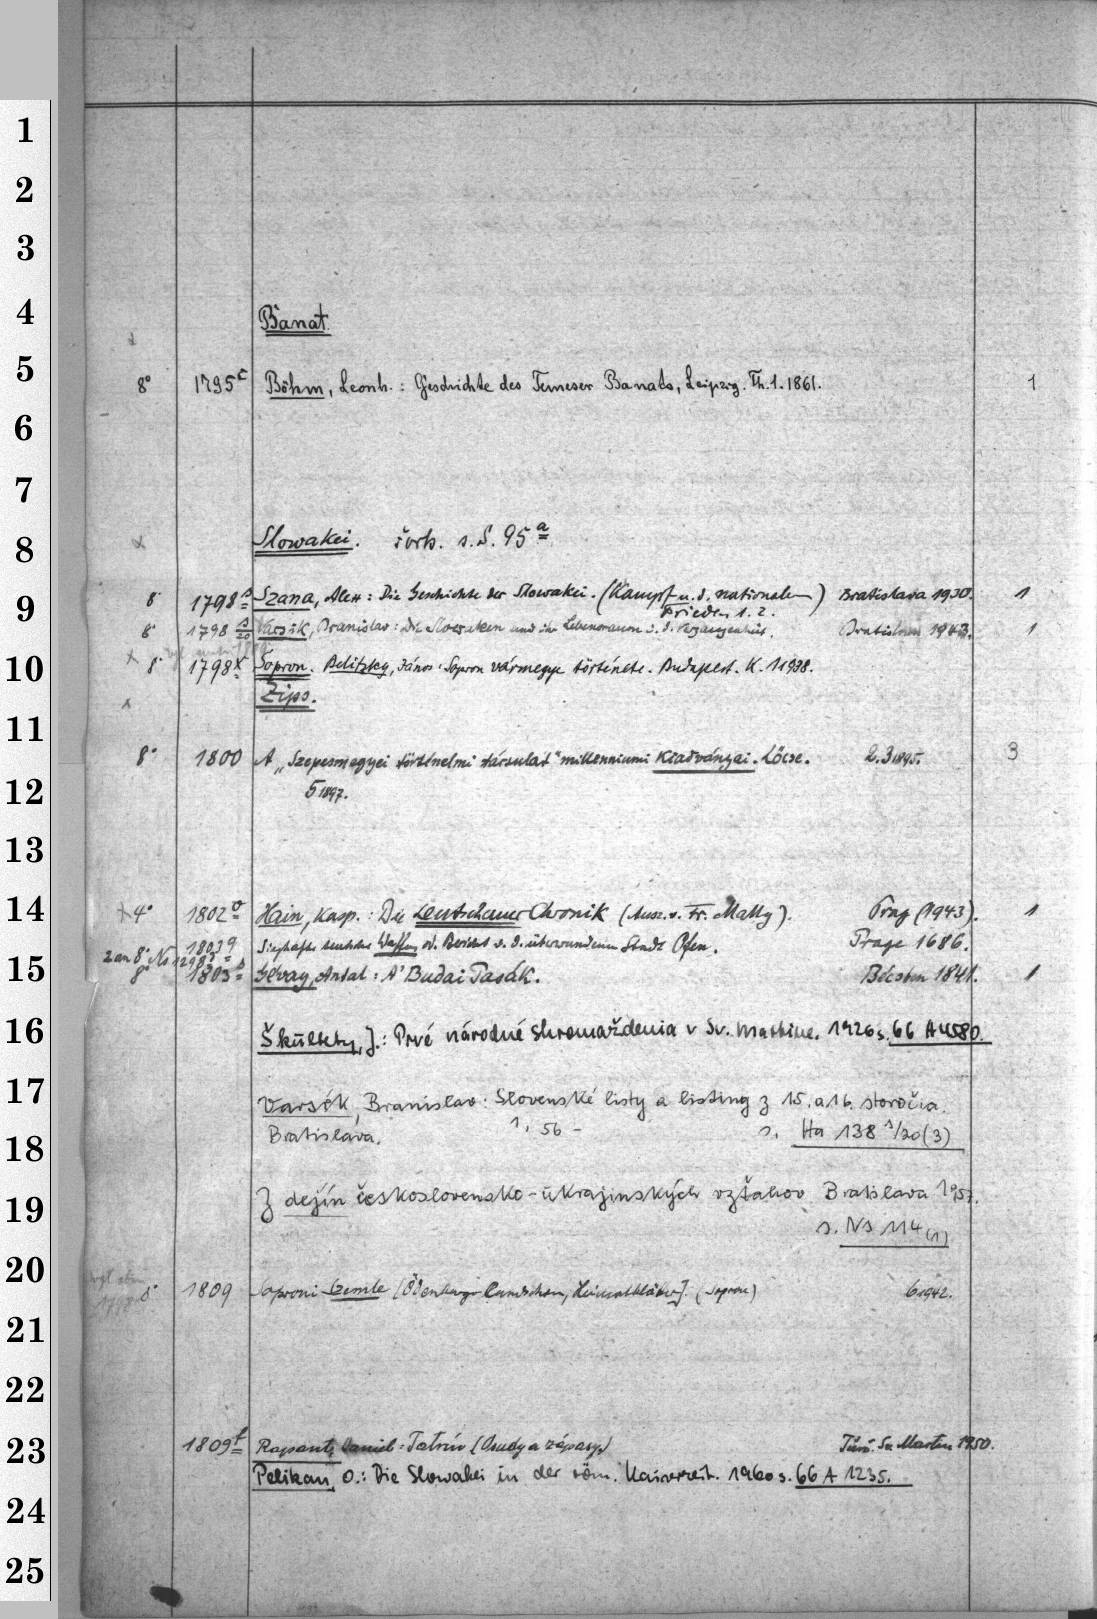 1
2
3
4
Banat
5
8° 1795 c Böhm, Leonh.: Geschichte des Temeser Banats, Leipzig. Th. 1. 1861. 1
6
7
8
Slowakei. s. S. 95 a
9
8° 1798 Szana, Alex: Die Geschichte der Slowakei. (Kampf u. d. nationalen Frieden 1. 2. ) Bratislava 1930. 1
8° 1798 s/20 Varsik, Branislav: Die Slovaken und ihr Lebensraum i. d. Vergangenheit. Bratislava 1943. 1
10
8° 1798 x Sopron. Belitzky, János: Sopron vármegye története. Budapest. K. 1 1938.
Zips.
11
8° 1800 A „Szepesmegyei történelmi társulat" millenniumi Kiadványai. Lőcse. 2. 3 1895. 3
12
5 1897.
13
14
4° 1802 Hain, Kasp.: Die Leutschauer Chronik (Ausz. v. Fr. Mally). Prag (1943). 1
2 an 8° Ns 1803 g Sieghafte teutsche Waffen od. Bericht v. d. überwundenen Stadt Ofen. Prage 1686.
15
8° 1803 Gévay, Antal: A' Budai Pasák. Bécsben 1841. 1
16
Škultéty, J.: Prvé národné shromaždenia v Sv. Martine. 1926 s. 66 A 4580.
17
Varsik, Branislav: Slovenské listy a listiny z 15. a 16. storočia.
18
Bratislava. 1, 56 - s. Ha 138 s/20 (3)
Z dejín československo-ukrajinských vzťahov Bratislava 1957.
19
s. Ns 114 (1)
20
8° 1809 Soproni Szemle [Ödenburger Rundschau, Heimatblätter]. (Sopron) 6 1942.
21
22
23
1809 f Rapant, Daniel: Tatrín (Osudy a zápasy) Turč. Sv. Martin 1950.
Pelikan, O.: Die Slowakei in der röm. Kaiserzeit. 1960 s. 66 A 1235.
24
25